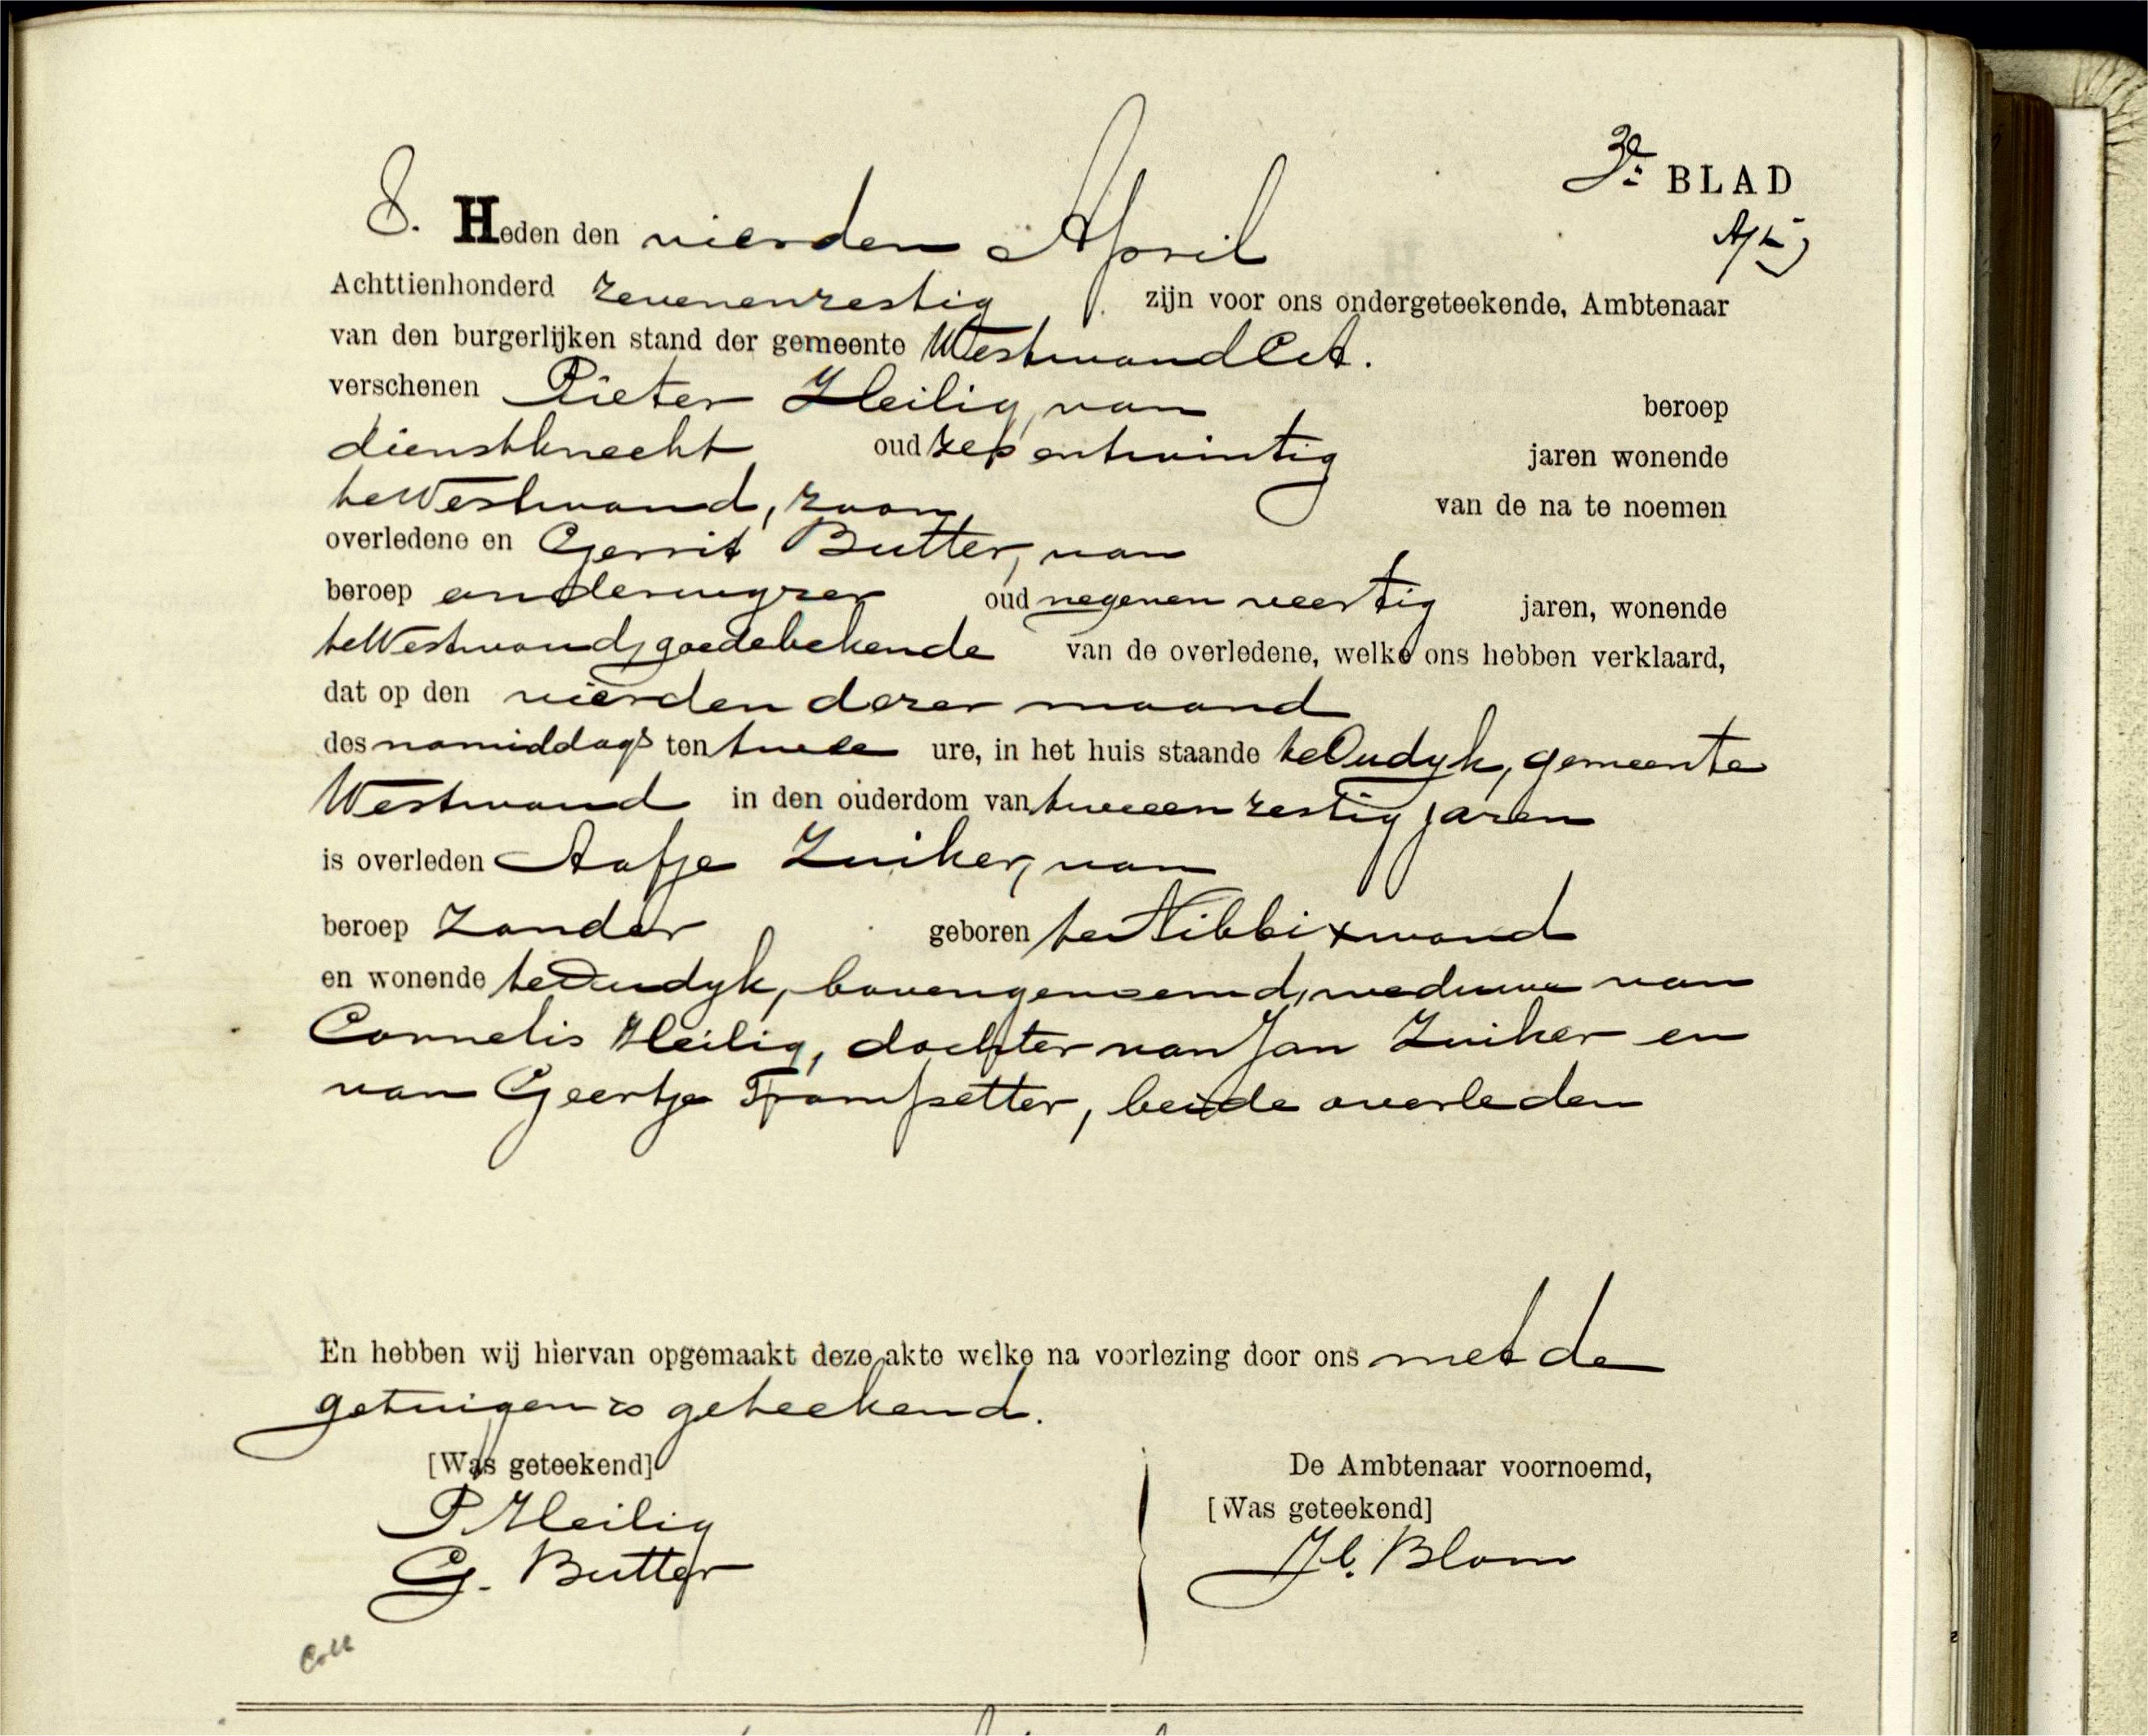 3e BLAD
8. Heden den vierden April
Achttienhonderd zevenenzestig zijn voor ons ondergeteekende, Ambtenaar
van den burgerlijken stand der gemeente Westwoud Cet.
verschenen Pieter Heilig, van beroep
dienstknecht oud zes entwintig jaren wonende
te Westwoud, zoon van de na te noemen
overledene en Gerrit Butter, van
beroep oud negenen veertig jaren, wonende
te Westwoud, goedebekende van de overledene, welke ons hebben verklaard,
dat op den vierden dezer maand
des namiddags ten twee ure, in het huis staande te Oudyk, gemeente
Westwoud in den ouderdom van tweeen zestig jaren
is overleden Aafje Zuiker, van
beroep Zonder geboren te Nibbixwoud
en wonende te Oudyk, bovengenoemd, weduwe van
Cornelis Heilig, dochter van Jan Zuiker en
van Geertje Trompetter, beide overleden
En hebben wij hiervan opgemaakt deze akte welke na voorlezing door ons met de
getuigen is geteekend.
[Was geteekend] De Ambtenaar voornoemd,
P Heilig [Was geteekend]
G. Butter Jb. Blom
Coll